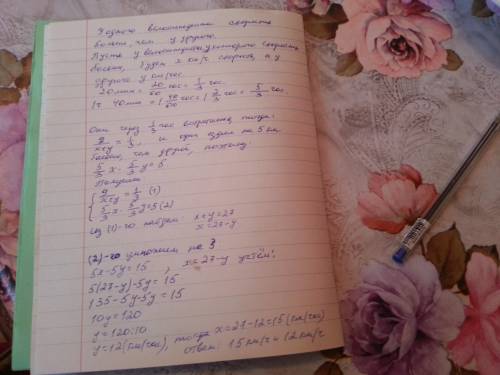 У одного велосипедиста скорость
больше, чем у другого.
Пусть у велосипедиста у которого скорость
больше, будет x км/ч скорость, а у
другого y км/час.
20 мин = 20/60 час = 1/3 час.
1ч 40 мин = 1 40/60 час = 1 2/3 час = 5/3 час.
Они через 1/3 час встретились, тогда:
9/x+y = 1/3, и один едет на 5 км
больше, чем другой, поэтому
5/3 x - 5/3 y = 5
Получим
{ 9/x+y = 1/3 (1)
{ 5/3 x - 5/3 y = 5 (2)
из (1)-го найдем: x+y=27
x=27-y
(2)-го умножаем на 3
5x-5y=15, x=27-y учтём:
5(27-y)-5y=15
135-5y-5y=15
10y=120
y=120:10
y=12 (км/час), тогда x=27-12=15 (км/час)
ответ: 15 км/ч и 12 км/ч